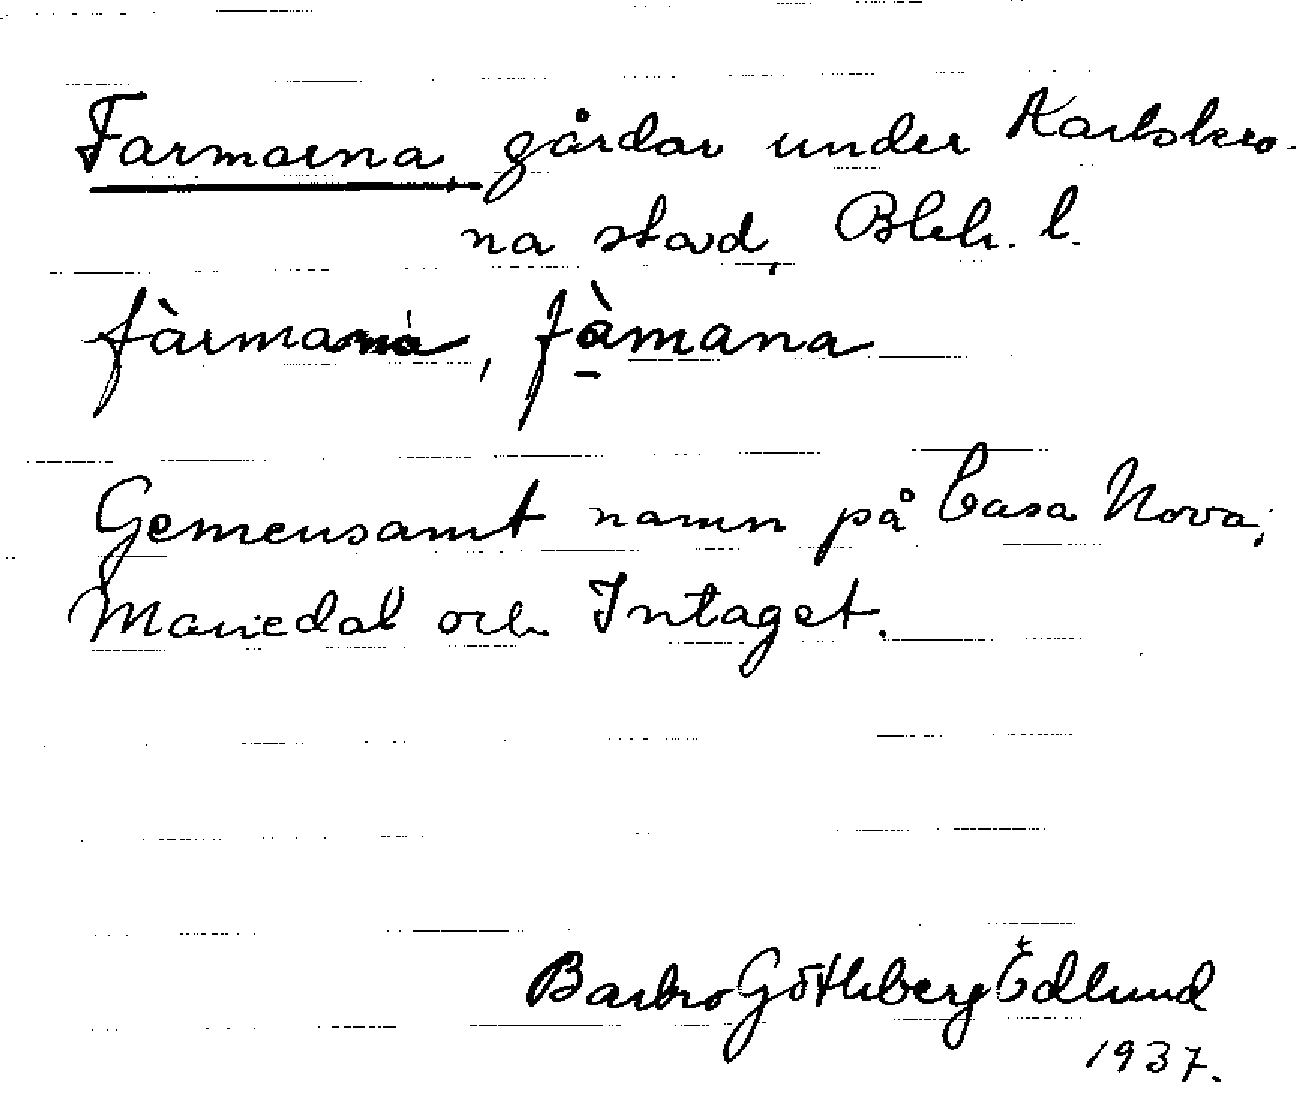 Farmarna, gårdar under Karlskro-
na stad, Blek. l.
fàrmaná, fà̱mana
Gemensamt namn på Casa Nova,
Mariedal och Intaget.
Barbro Göthberg Edlund
1937.